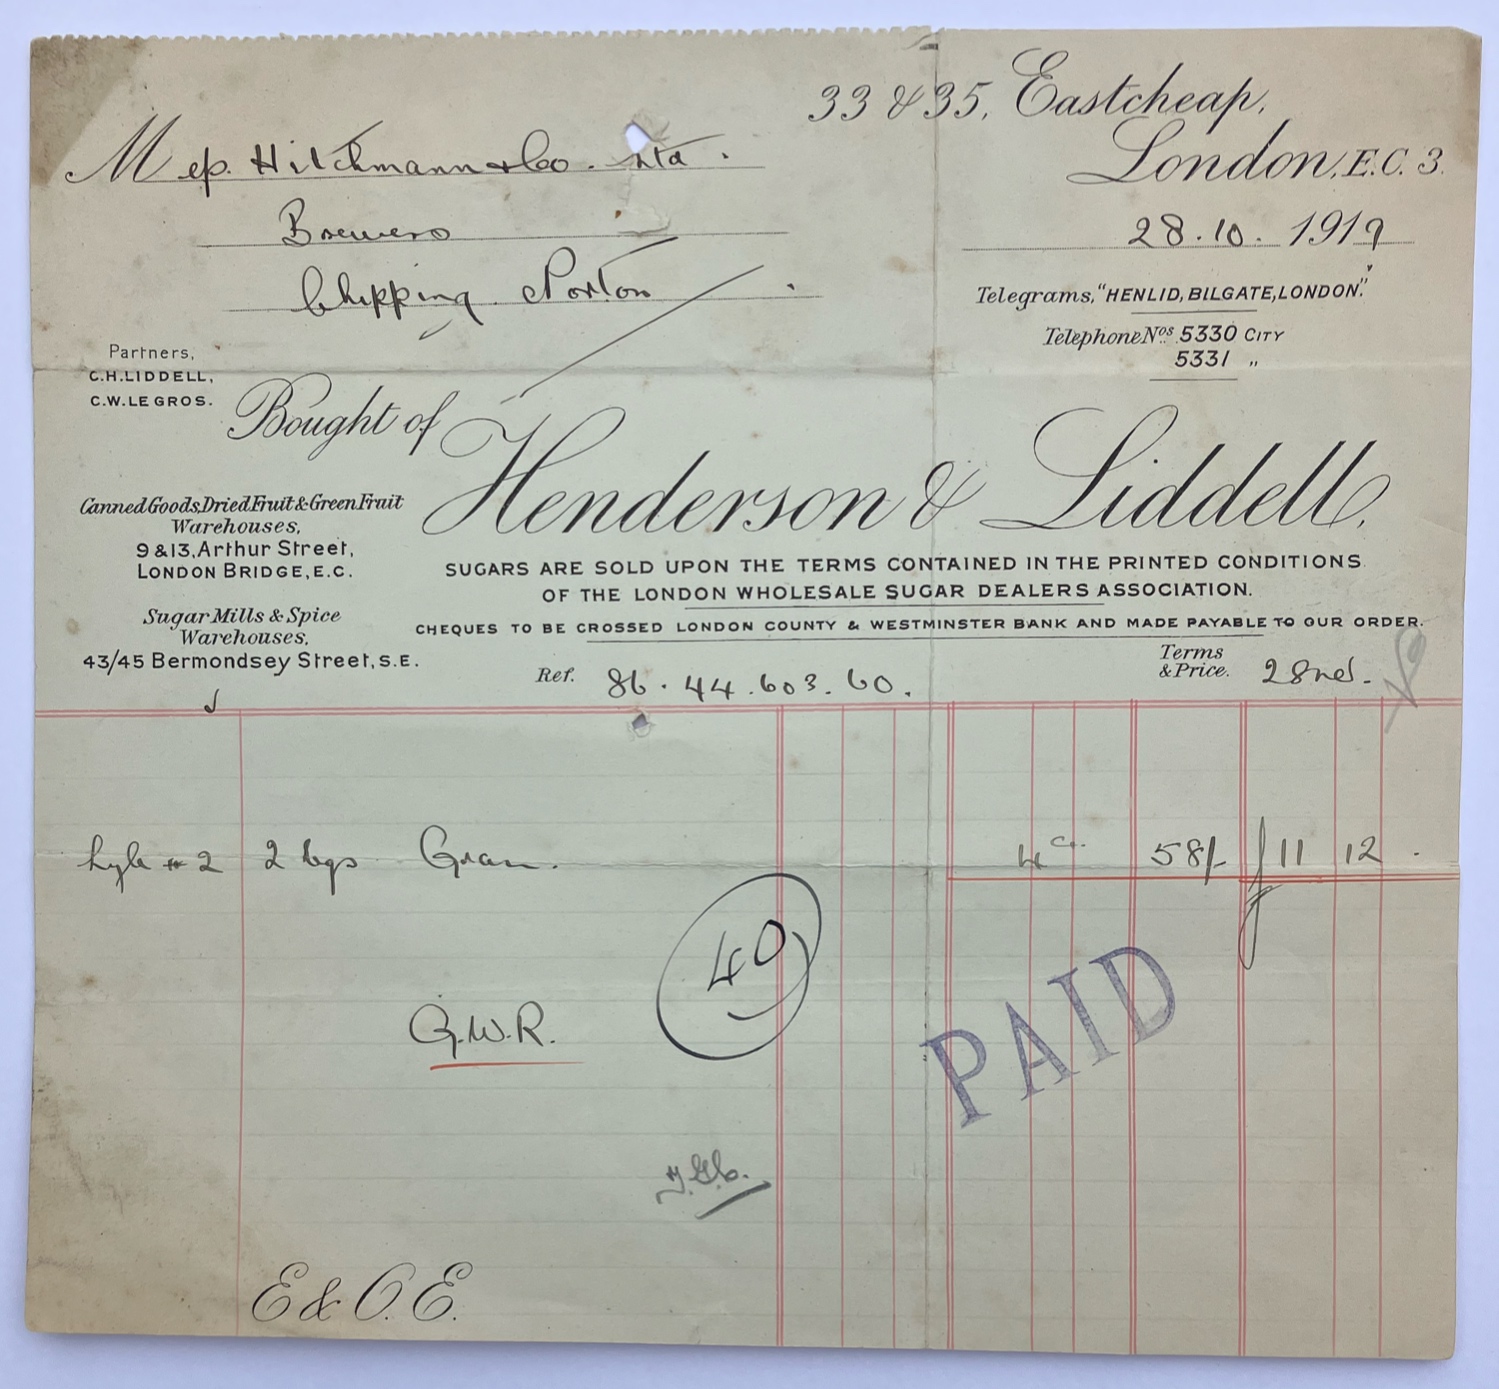 33 & 35, Eastcheap,
London, E.C. 3.
28.10. 1919
Telegrams, "HENLID, BILGATE, LONDON."
Telephone Nos. 5330 CITY
5331 "
Hitchmann & Co. Ltd.
Brewers
Chipping Norton
Partners,
C.H. LIDDELL,
C.W. LE GROS.
Bought of Henderson & Liddell,
Canned Goods, Dried Fruit & Green Fruit
Warehouses,
9 & 13, Arthur Street,
LONDON BRIDGE, E.C.
Sugar Mills & Spice
Warehouses,
43/45 Bermondsey Street, S.E.
SUGARS ARE SOLD UPON THE TERMS CONTAINED IN THE PRINTED CONDITIONS
OF THE LONDON WHOLESALE SUGAR DEALERS ASSOCIATION.
CHEQUES TO BE CROSSED LONDON COUNTY & WESTMINSTER BANK AND MADE PAYABLE TO OUR ORDER.
Ref. 86.44.603.60.
Terms & Price. 28
Lyle # 2 2 bgs Gran. 4 58/- 11 12
40
G.W.R.
PAID
E & O.E.